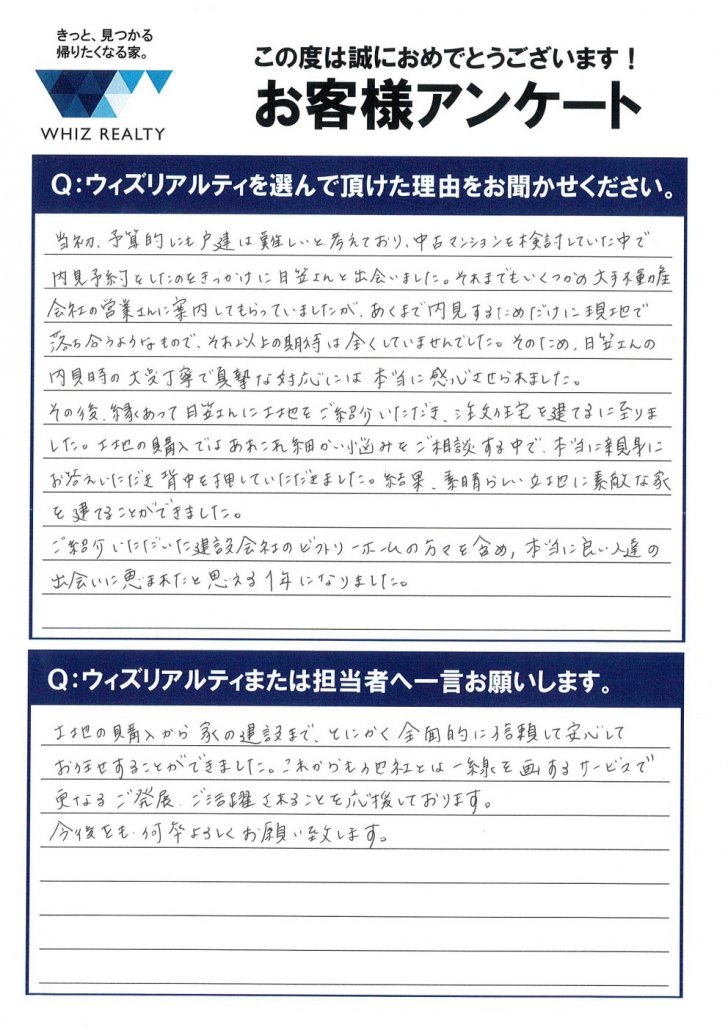 きっと、見つかる
帰りたくなる家。
WHIZ REALTY
この度は誠におめでとうございます！
お客様アンケート
Q：ウィズリアルティを選んで頂けた理由をお聞かせください。
当初、予算的にも戸建は難しいと考えており、中古マンションを検討していた中で
内見予約をしたのをきっかけに日笠さんと出会いました。それまでもいくつかの大手不動産
会社の営業さんに案内してもらっていましたが、あくまで内見するためだけに現地で
落ち合うようなもので、それ以上の期待は全くしていませんでした。そのため、日笠さんの
内見時の大変丁寧で真摯な対応には本当に感心させられました。
その後、縁あって日笠さんに土地をご紹介いただき、注文住宅を建てるに至りま
した。土地の購入ではあれこれ細かい悩みをご相談する中で、本当に親身に
お答えいただき背中を押していただきました。結果、素晴らしい立地に素敵な家
を建てることができました。
ご紹介いただいた建設会社のビクトリーホームの方々を含め、本当に良い人達の
出会いに恵まれたと思える1年になりました。
Q：ウィズリアルティまたは担当者へ一言お願いします。
土地の購入から家の建設まで、とにかく全面的に信頼して安心して
お任せすることができました。これからも他社とは一線を画するサービスで
更なるご発展、ご活躍されることを応援しております。
今後とも何卒よろしくお願い致します。